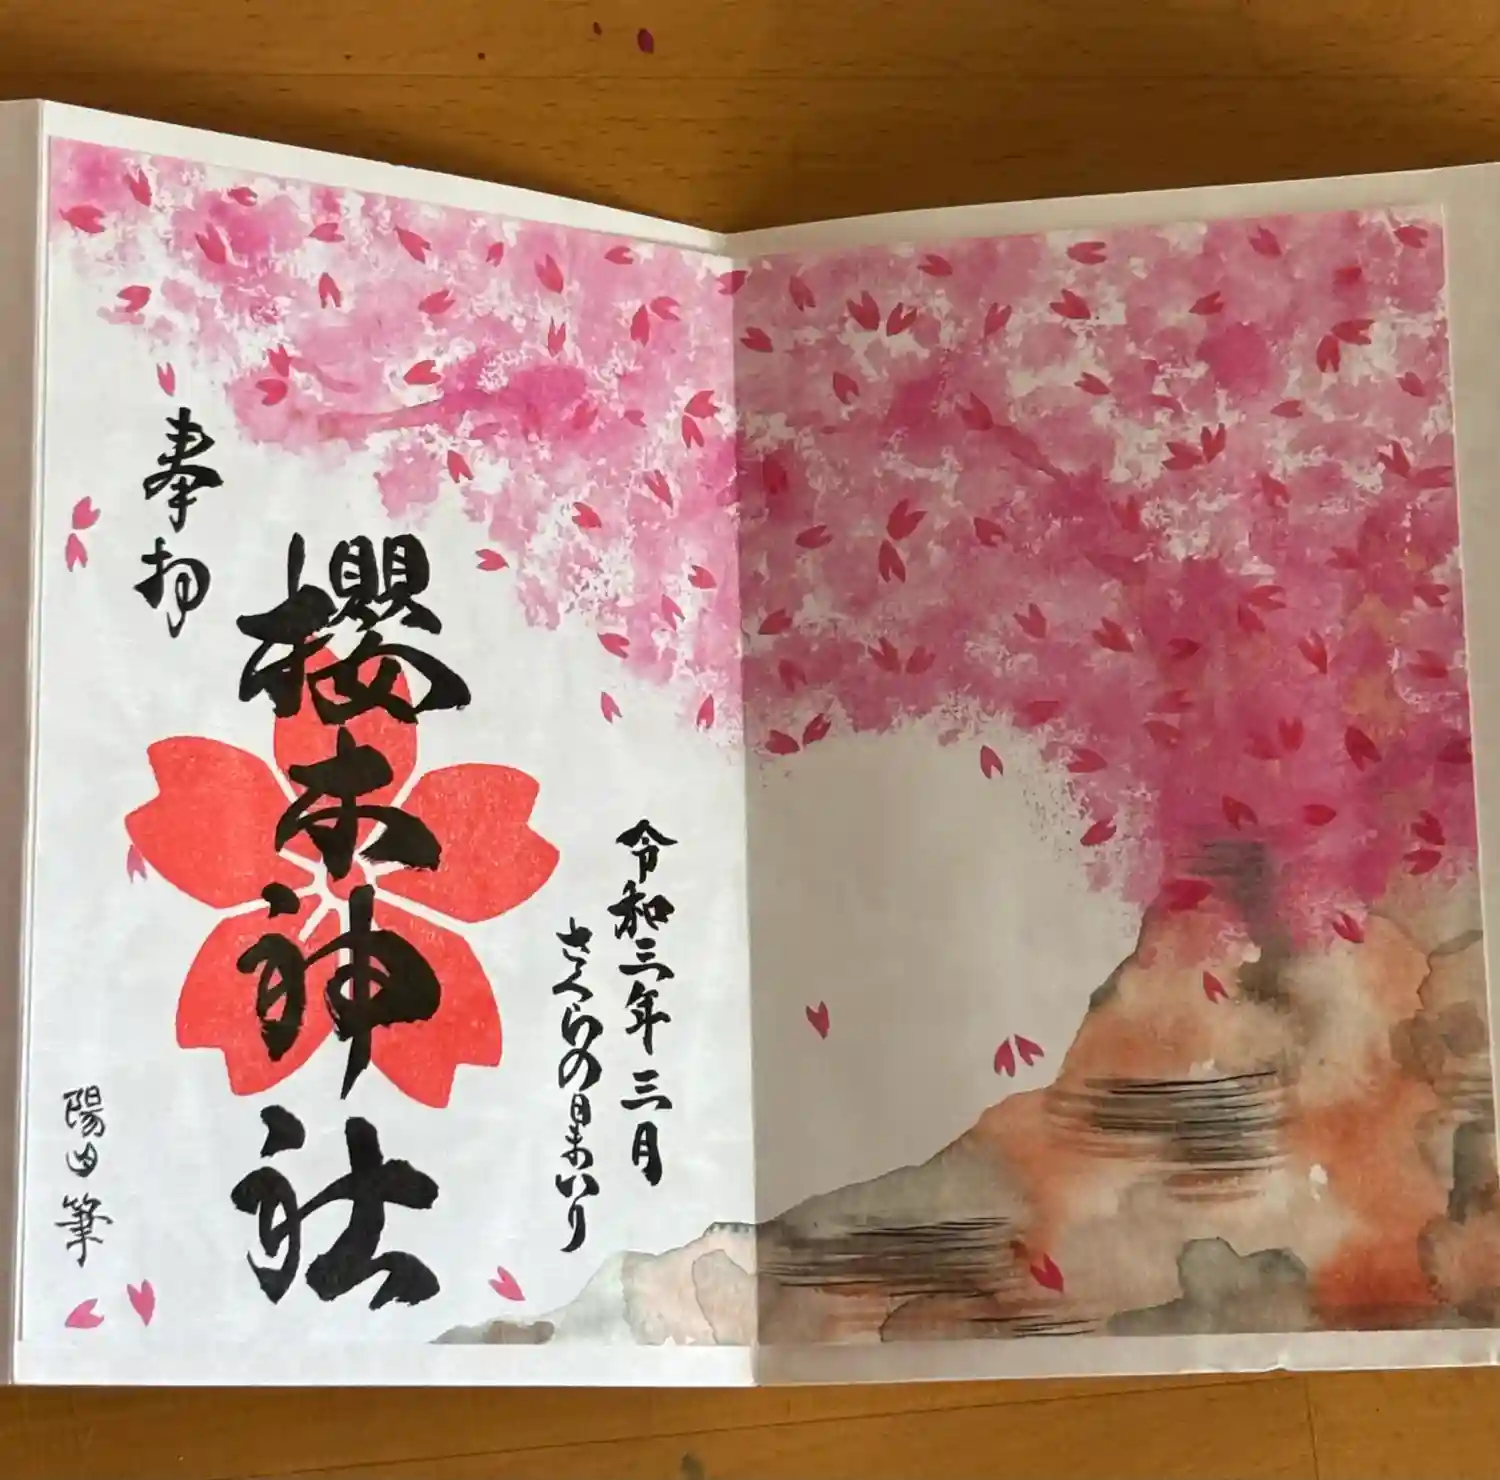 令和三年 三月
さくらの日まいり
櫻木神社
奉拝
陽由筆